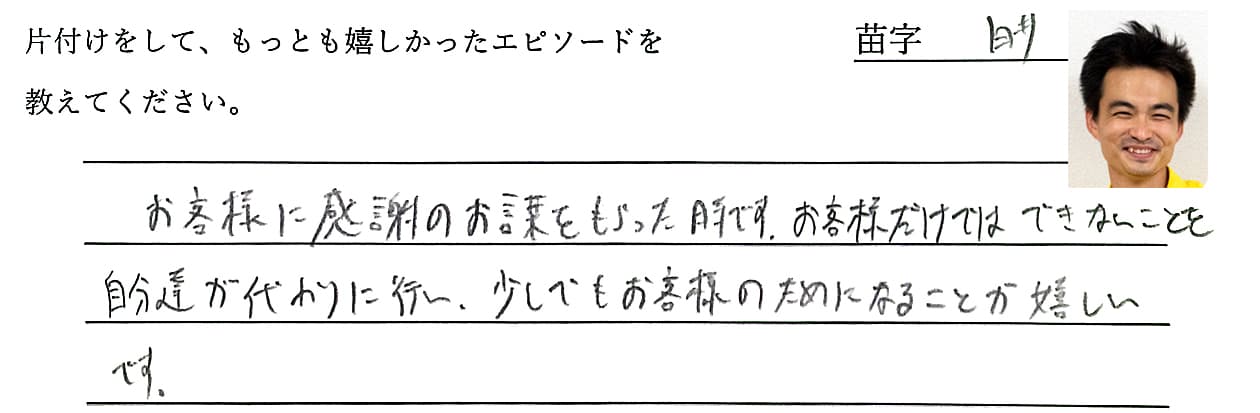 片付けをして、もっとも嬉しかったエピソードを
教えてください。
苗字
お客様に感謝のお言葉をもらった時です。お客様だけでは できないことを
自分達が代わりに行い、少しでもお客様のためになることが嬉しい
です。